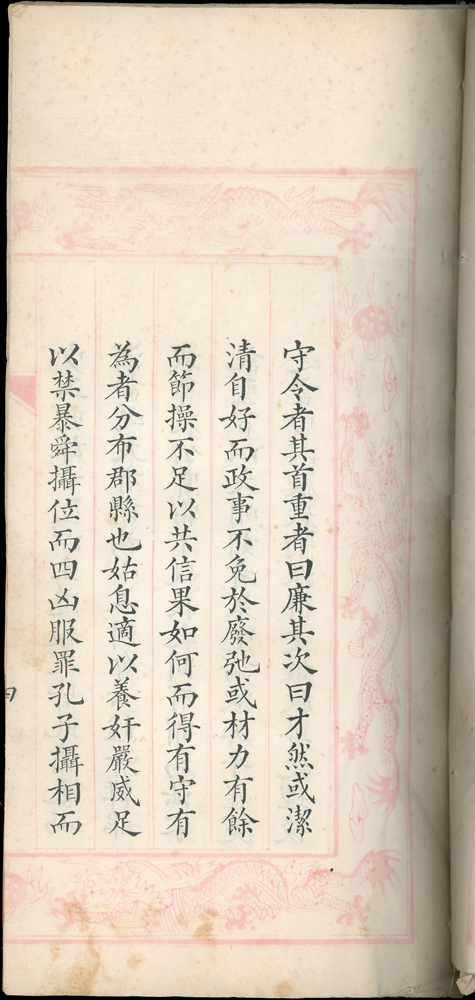 守令者其首重者曰廉其次曰才然或潔
清自好而政事不免於廢弛或材力有餘
而節操不足以共信果如何而得有守有
為者分布郡縣也姑息適以養奸嚴威足
以禁暴舜攝位而四凶服罪孔子攝相而